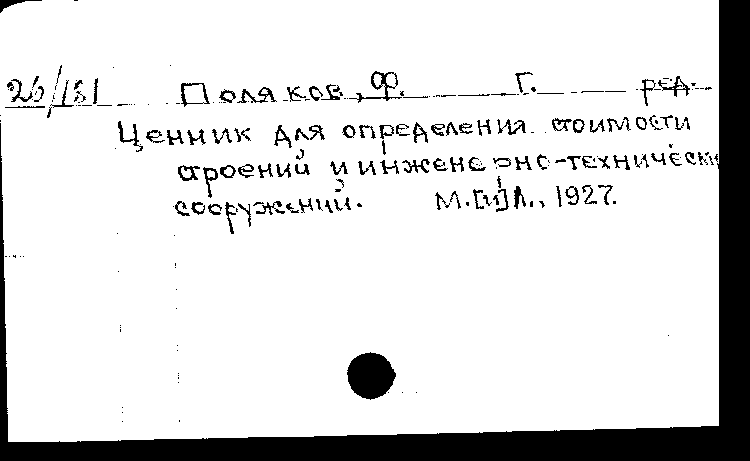 26/181 Поляков, Ф. Г. ред.
Ценник для определения стоимости
строений и инженерно-технически
сооружений. М.[и]Л., 1927.